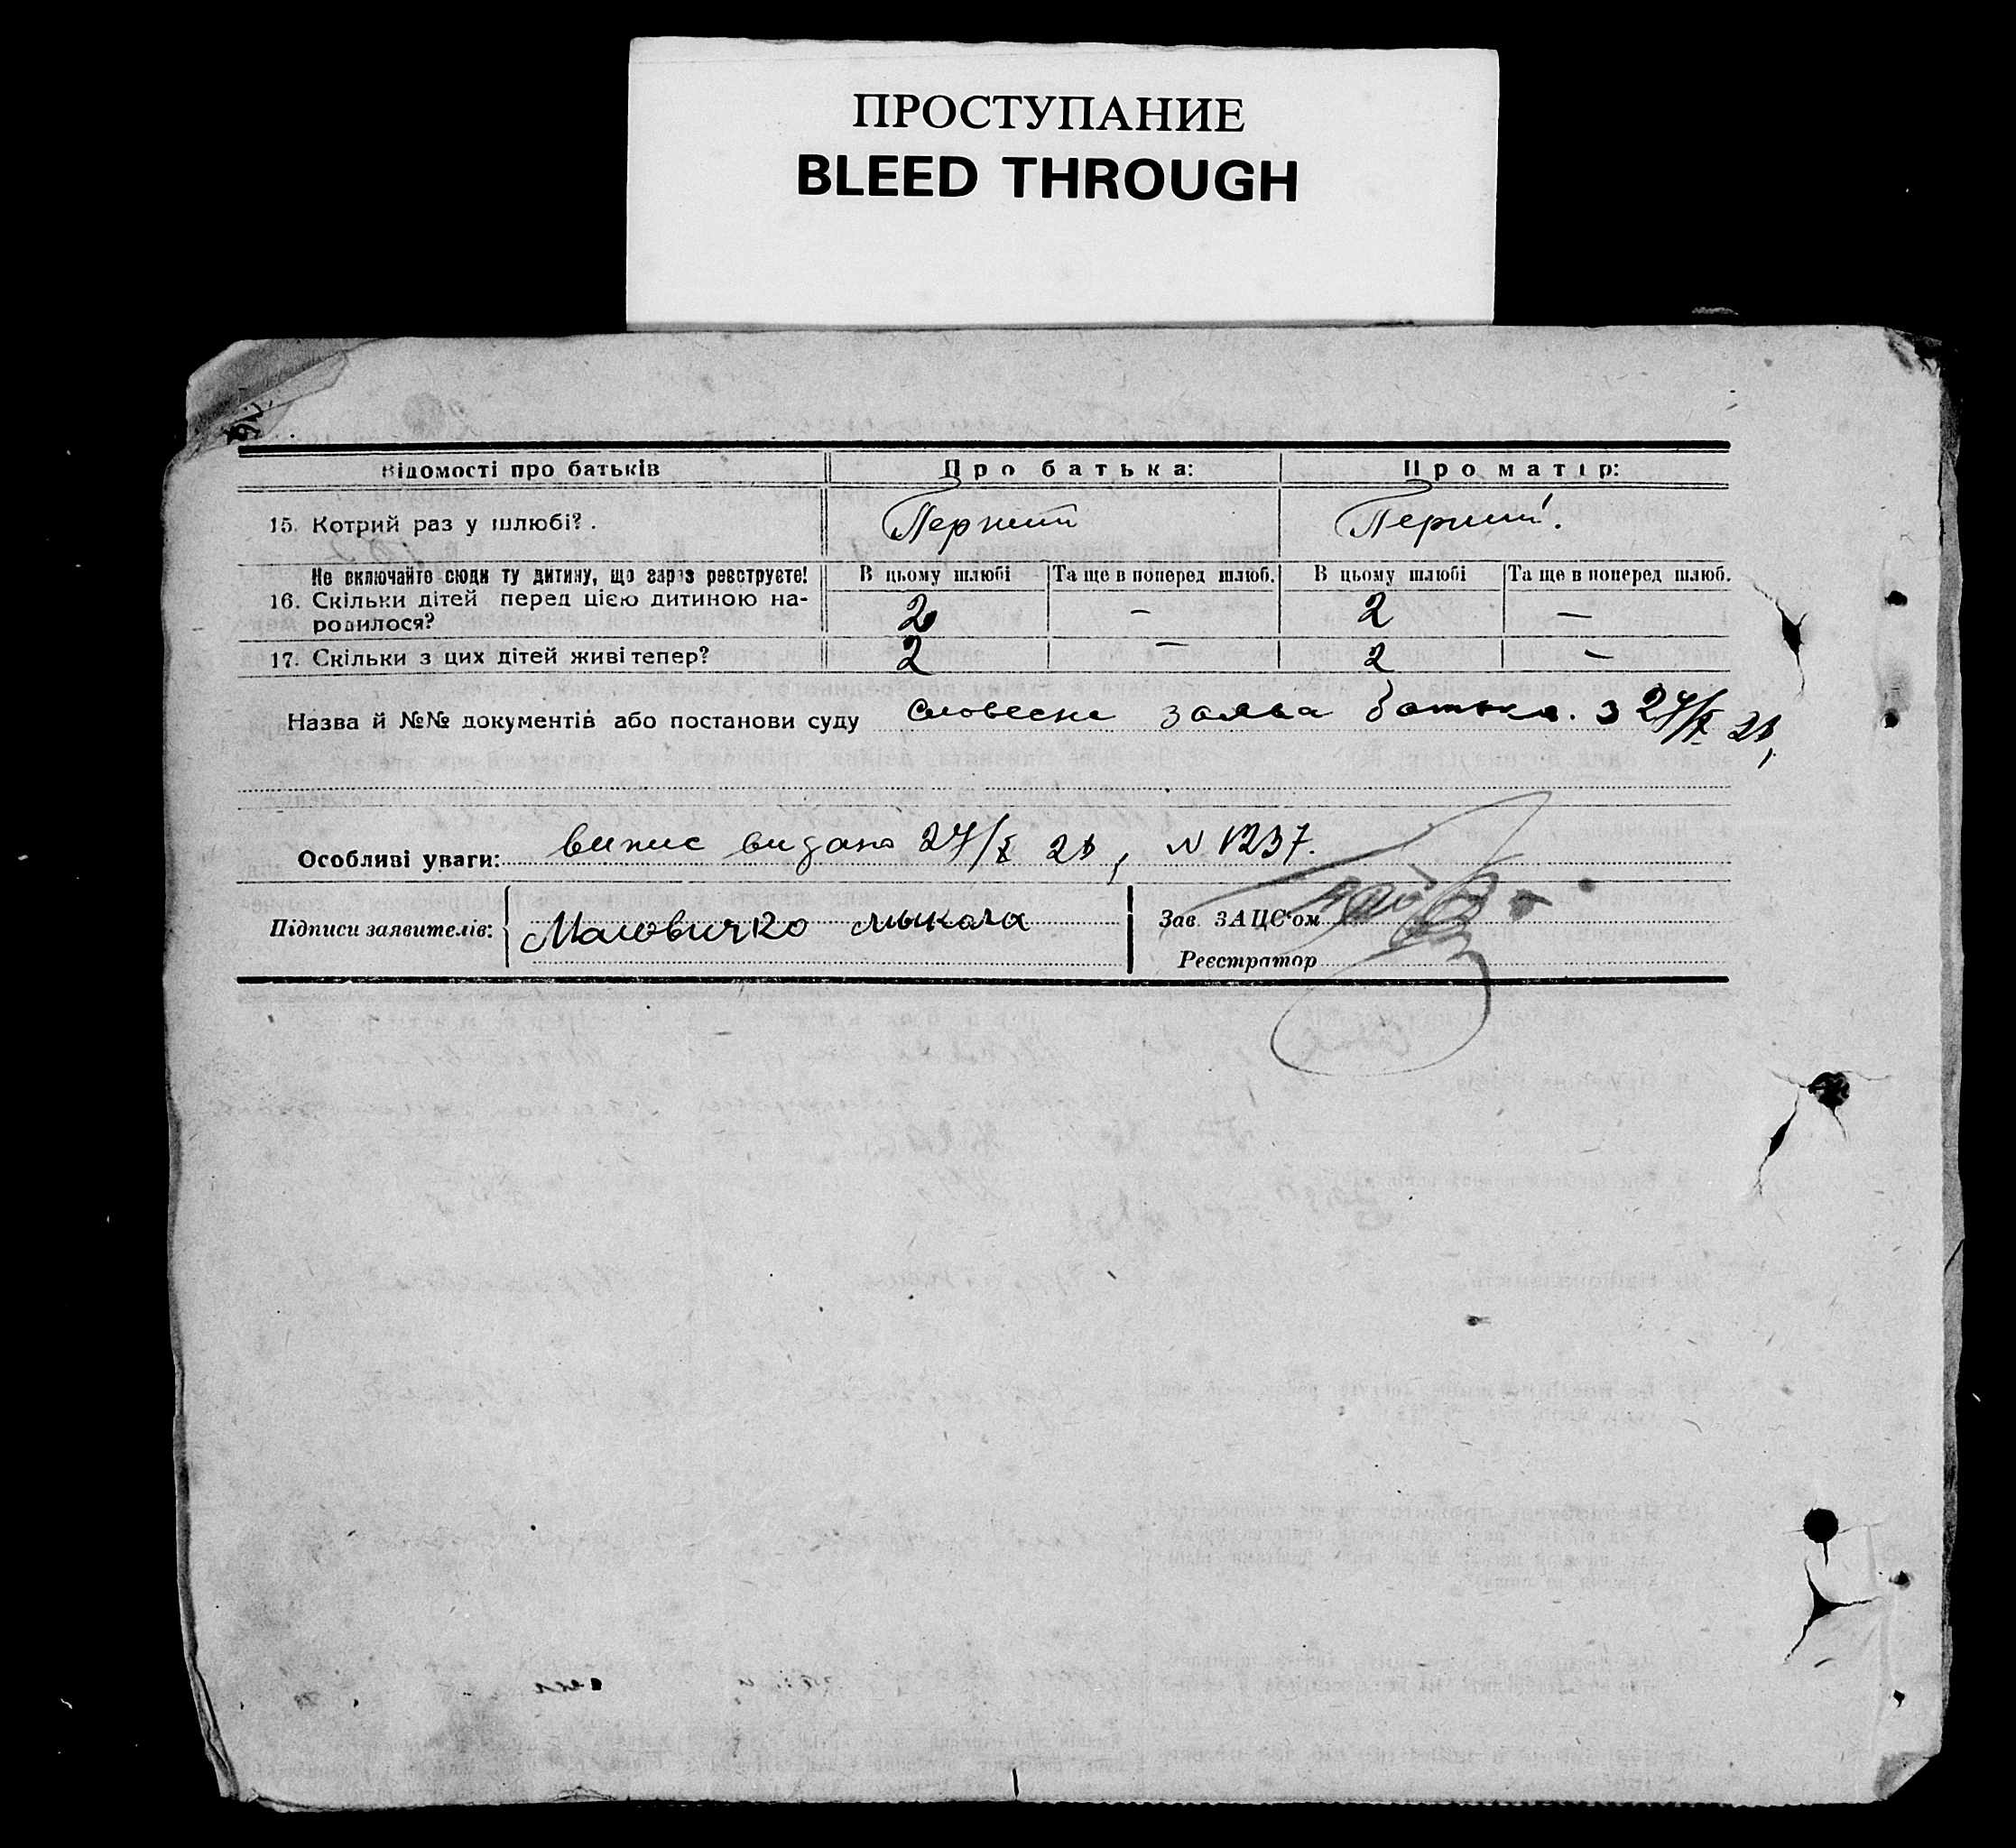 ПРОСТУПАНИЕ
BLEED THROUGH
Відомості про батьків Про батька: Про матір:
15. Котрий раз у шлюбі? . Перший Перший.
Не включайте сюди ту дитину, що зараз реєструєте! В цьому шлюбі Та ще в поперед шлюб. В цьому шлюбі Та ще в поперед шлюб.
16. Скільки дітей перед цією дитиною на-
родилося? 2 – 2 –
17. Скільки з цих дітей живі тепер? 2 – 2 –
Назва й №№ документів або постанови суду словесна заява батька. з 27/X 28,
Особливі уваги: випис видано 27/X 28, N 1237.
Підписи заявителів: Маловичко мыкола Зав. ЗАЦС'ом
Реєстратор